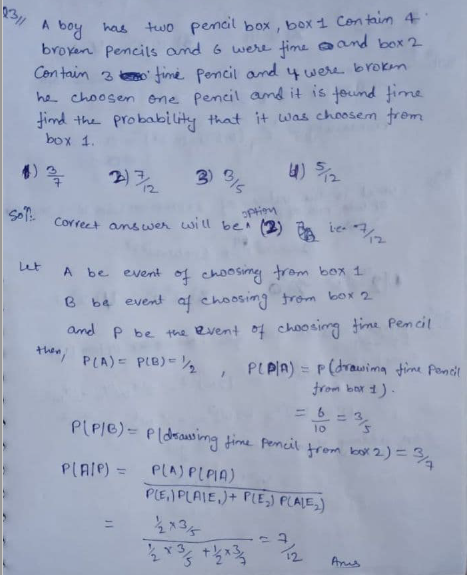 Q3//
A boy has two pencil box, box 1 Contain 4
broken Pencils and 6 were fine and box 2
Contain 3 fine pencil and 4 were broken
he choosen one pencil and it is found fine
find the probability that it was choosen from
box 1.
1) 3/7 2) 7/12 3) 3/5 4) 5/12
Solⁿ. Correct answer will be option (2) i.e. 7/12
Let A be event of choosing from box 1
B be event of choosing from box 2
and P be the Event of choosing fine Pencil
then, P(A) = P(B) = 1/2 , P(P/A) = P(drawing fine Pencil
from box 1).
= 6/10 = 3/5
P(P/B) = P(drawing fine Pencil from box 2) = 3/7
P(A|P) = P(A) P(P|A) / P(E₁) P(A|E₁) + P(E₂) P(A|E₂)
= 1/2 × 3/5 / 1/2 × 3/5 + 1/2 × 3/7 = 7/12 Ans